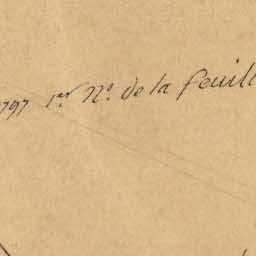 797 1.er N.o de la feuill